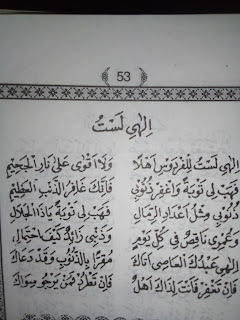 53
اِلٰهِي لَسْتُ
اِلٰهِي لَسْتُ لِلْفِرْدَوْسِ اَهْلًا وَلَا اَقْوٰى عَلٰى نَارِ الْجَحِيْمِ
فَهَبْ لِي تَوْبَةً وَاغْفِرْ ذُنُوْبِي فَاِنَّكَ غَافِرُ الذَّنْبِ الْعَظِيْمِ
ذُنُوْبِي مِثْلُ اَعْدَادِ الرِّمَالِ فَهَبْ لِي تَوْبَةً يَاذَا الْجَلَالِ
وَعُمْرِي نَاقِصٌ فِي كُلِّ يَوْمٍ وَذَنْبِي زَائِدٌ كَيْفَ احْتِمَالِي
اِلٰهِي عَبْدُكَ الْعَاصِي اَتَاكَ مُقِرًّا بِالذُّنُوْبِ وَقَدْ دَعَاكَ
فَاِنْ تَغْفِرْ فَاَنْتَ لِذَاكَ اَهْلٌ فَاِنْ تَطْرُدْ فَمَنْ نَرْجُو سِوَاكَ